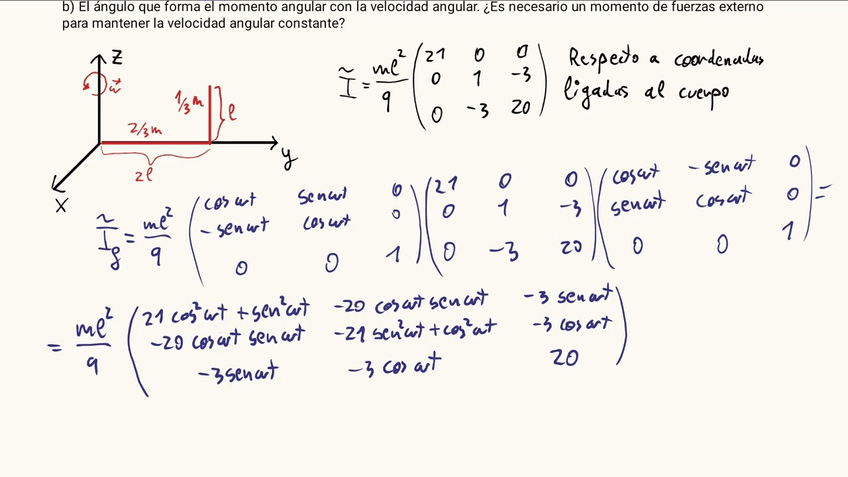 b) El ángulo que forma el momento angular con la velocidad angular. ¿Es necesario un momento de fuerzas externo
para mantener la velocidad angular constante?
z
w⃗
1/3 m
l
2/3 m
2l
y
x
Ĩ = ml²/9 ( 21 0 0
0 1 -3
0 -3 20 )
Respecto a coordenadas
ligadas al cuerpo
Ĩg = ml²/9 ( cos wt sen wt 0
- sen wt cos wt 0
0 0 1 ) ( 21 0 0
0 1 -3
0 -3 20 ) ( cos wt - sen wt 0
sen wt cos wt 0
0 0 1 ) =
= ml²/9 ( 21 cos² wt + sen² wt -20 cos wt sen wt -3 sen wt
-20 cos wt sen wt -21 sen² wt + cos² wt -3 cos wt
-3 sen wt -3 cos wt 20 )